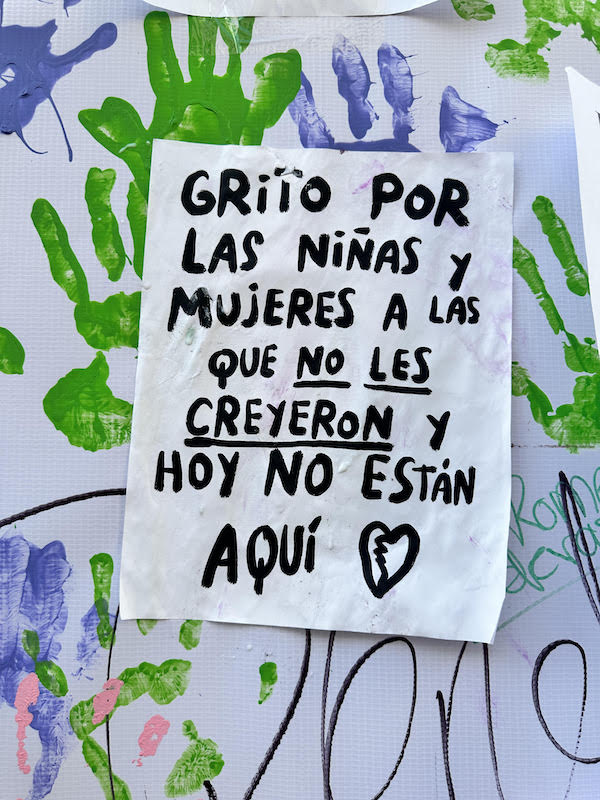 GRiTO POR
LAS NiÑAS y
MUjERES A LAS
QUE NO LES
CREYERON y
HOY NO ESTÁN
AQUÍ